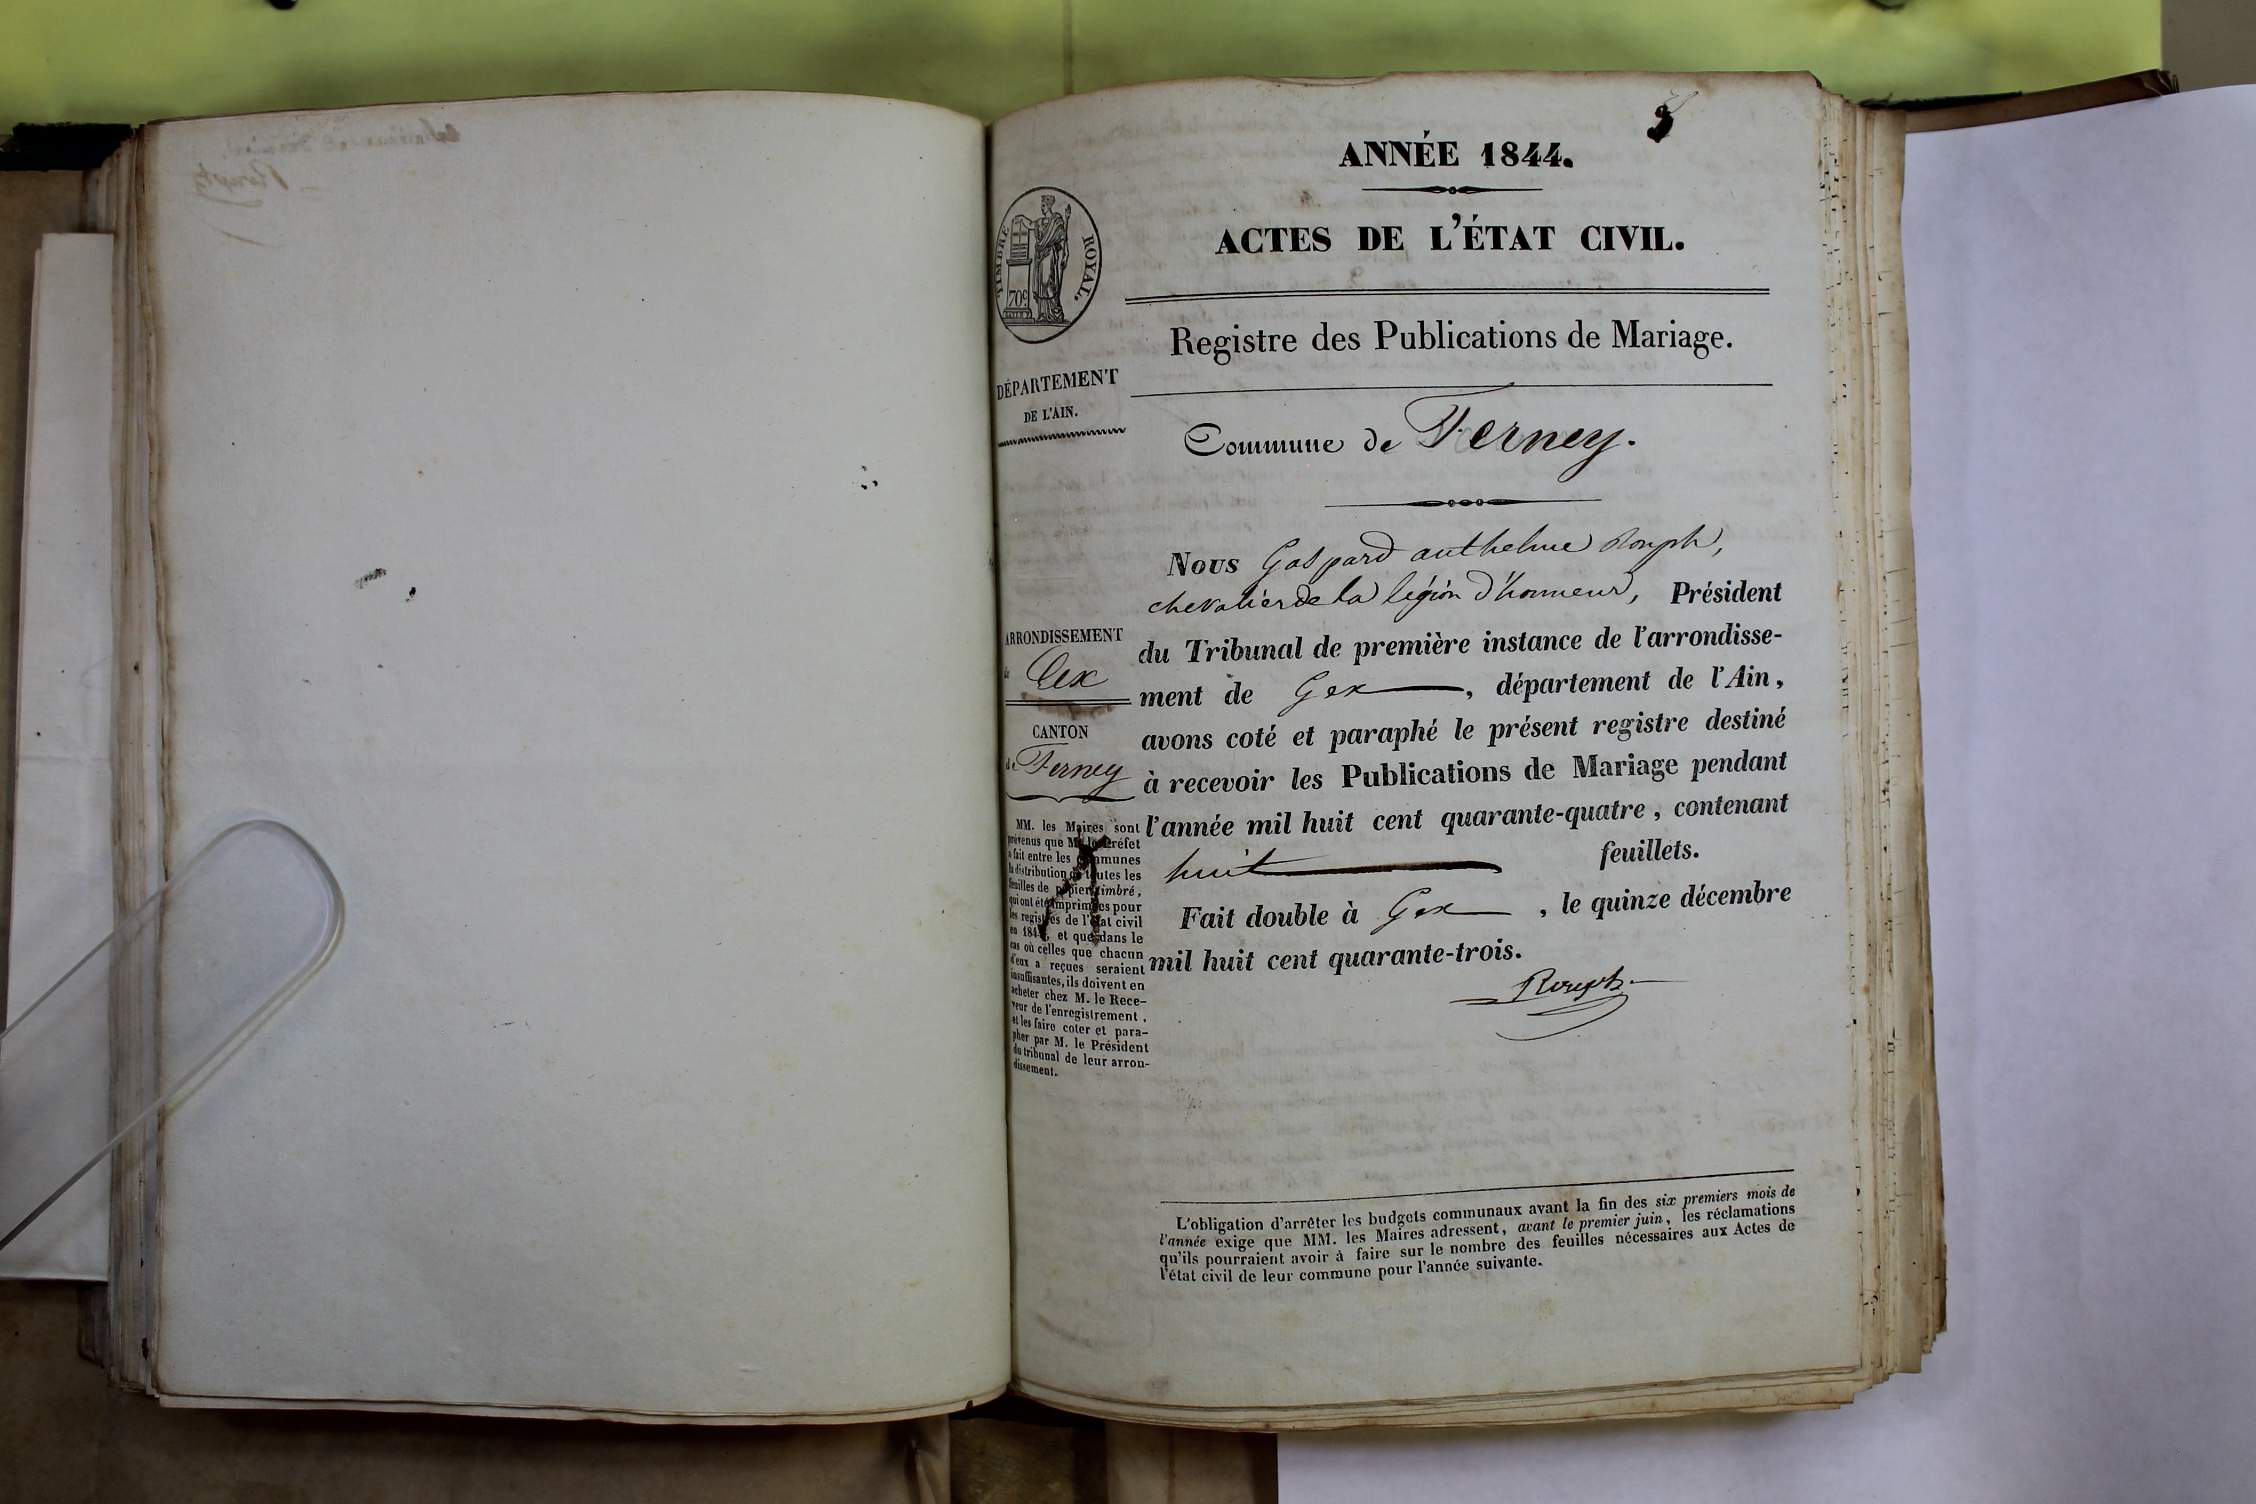 ANNÉE 1844.
ACTES DE L'ÉTAT CIVIL.
TIMBRE ROYAL.
70c
Registre des Publications de Mariage.
DÉPARTEMENT
DE L'AIN.
Commune de Ferney.
Nous Gaspard anthelme Rouph,
chevalier de la légion d'honneur, Président
du Tribunal de première instance de l'arrondisse-
ment de Gex, département de l'Ain,
avons coté et paraphé le présent registre destiné
à recevoir les Publications de Mariage pendant
l'année mil huit cent quarante-quatre, contenant
huit feuillets.
Fait double à Gex, le quinze décembre
mil huit cent quarante-trois.
Rouph
ARRONDISSEMENT
de Gex
CANTON
de Ferney
MM. les Maires sont
prévenus que M. le Préfet
a fait entre les communes
la distribution de toutes les
feuilles de papier timbré,
qui ont été imprimées pour
les registres de l'état civil
en 1844, et que dans le
cas où celles que chacun
d'eux a reçues seraient
insuffisantes, ils doivent en
acheter chez M. le Rece-
veur de l'enregistrement,
et les faire coter et para-
pher par M. le Président
du tribunal de leur arron-
dissement.
L'obligation d'arrêter les budgets communaux avant la fin des six premiers mois de
l'année exige que MM. les Maires adressent, avant le premier juin, les réclamations
qu'ils pourraient avoir à faire sur le nombre des feuilles nécessaires aux Actes de
l'état civil de leur commune pour l'année suivante.